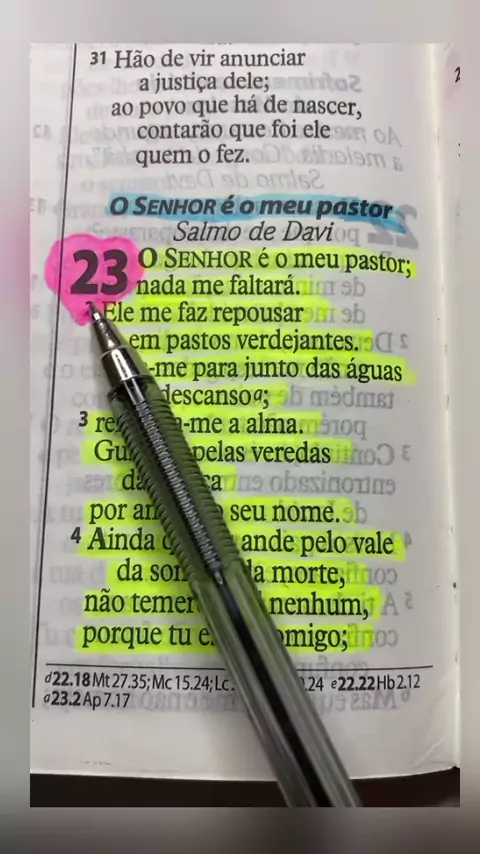 31 Hão de vir anunciar
a justiça dele;
ao povo que há de nascer,
contarão que foi ele
quem o fez.
O SENHOR é o meu pastor
Salmo de Davi
23 O SENHOR é o meu pastor;
nada me faltará.
Ele me faz repousar
em pastos verdejantes.
-me para junto das águas
descanso a;
3 -me a alma.
pelas veredas
por seu nome.
4 Ainda ande pelo vale
da morte,
não nenhum,
porque tu
d 22.18 Mt 27.35; Mc 15.24; .24 e 22.22 Hb 2.12
a 23.2 Ap 7.17